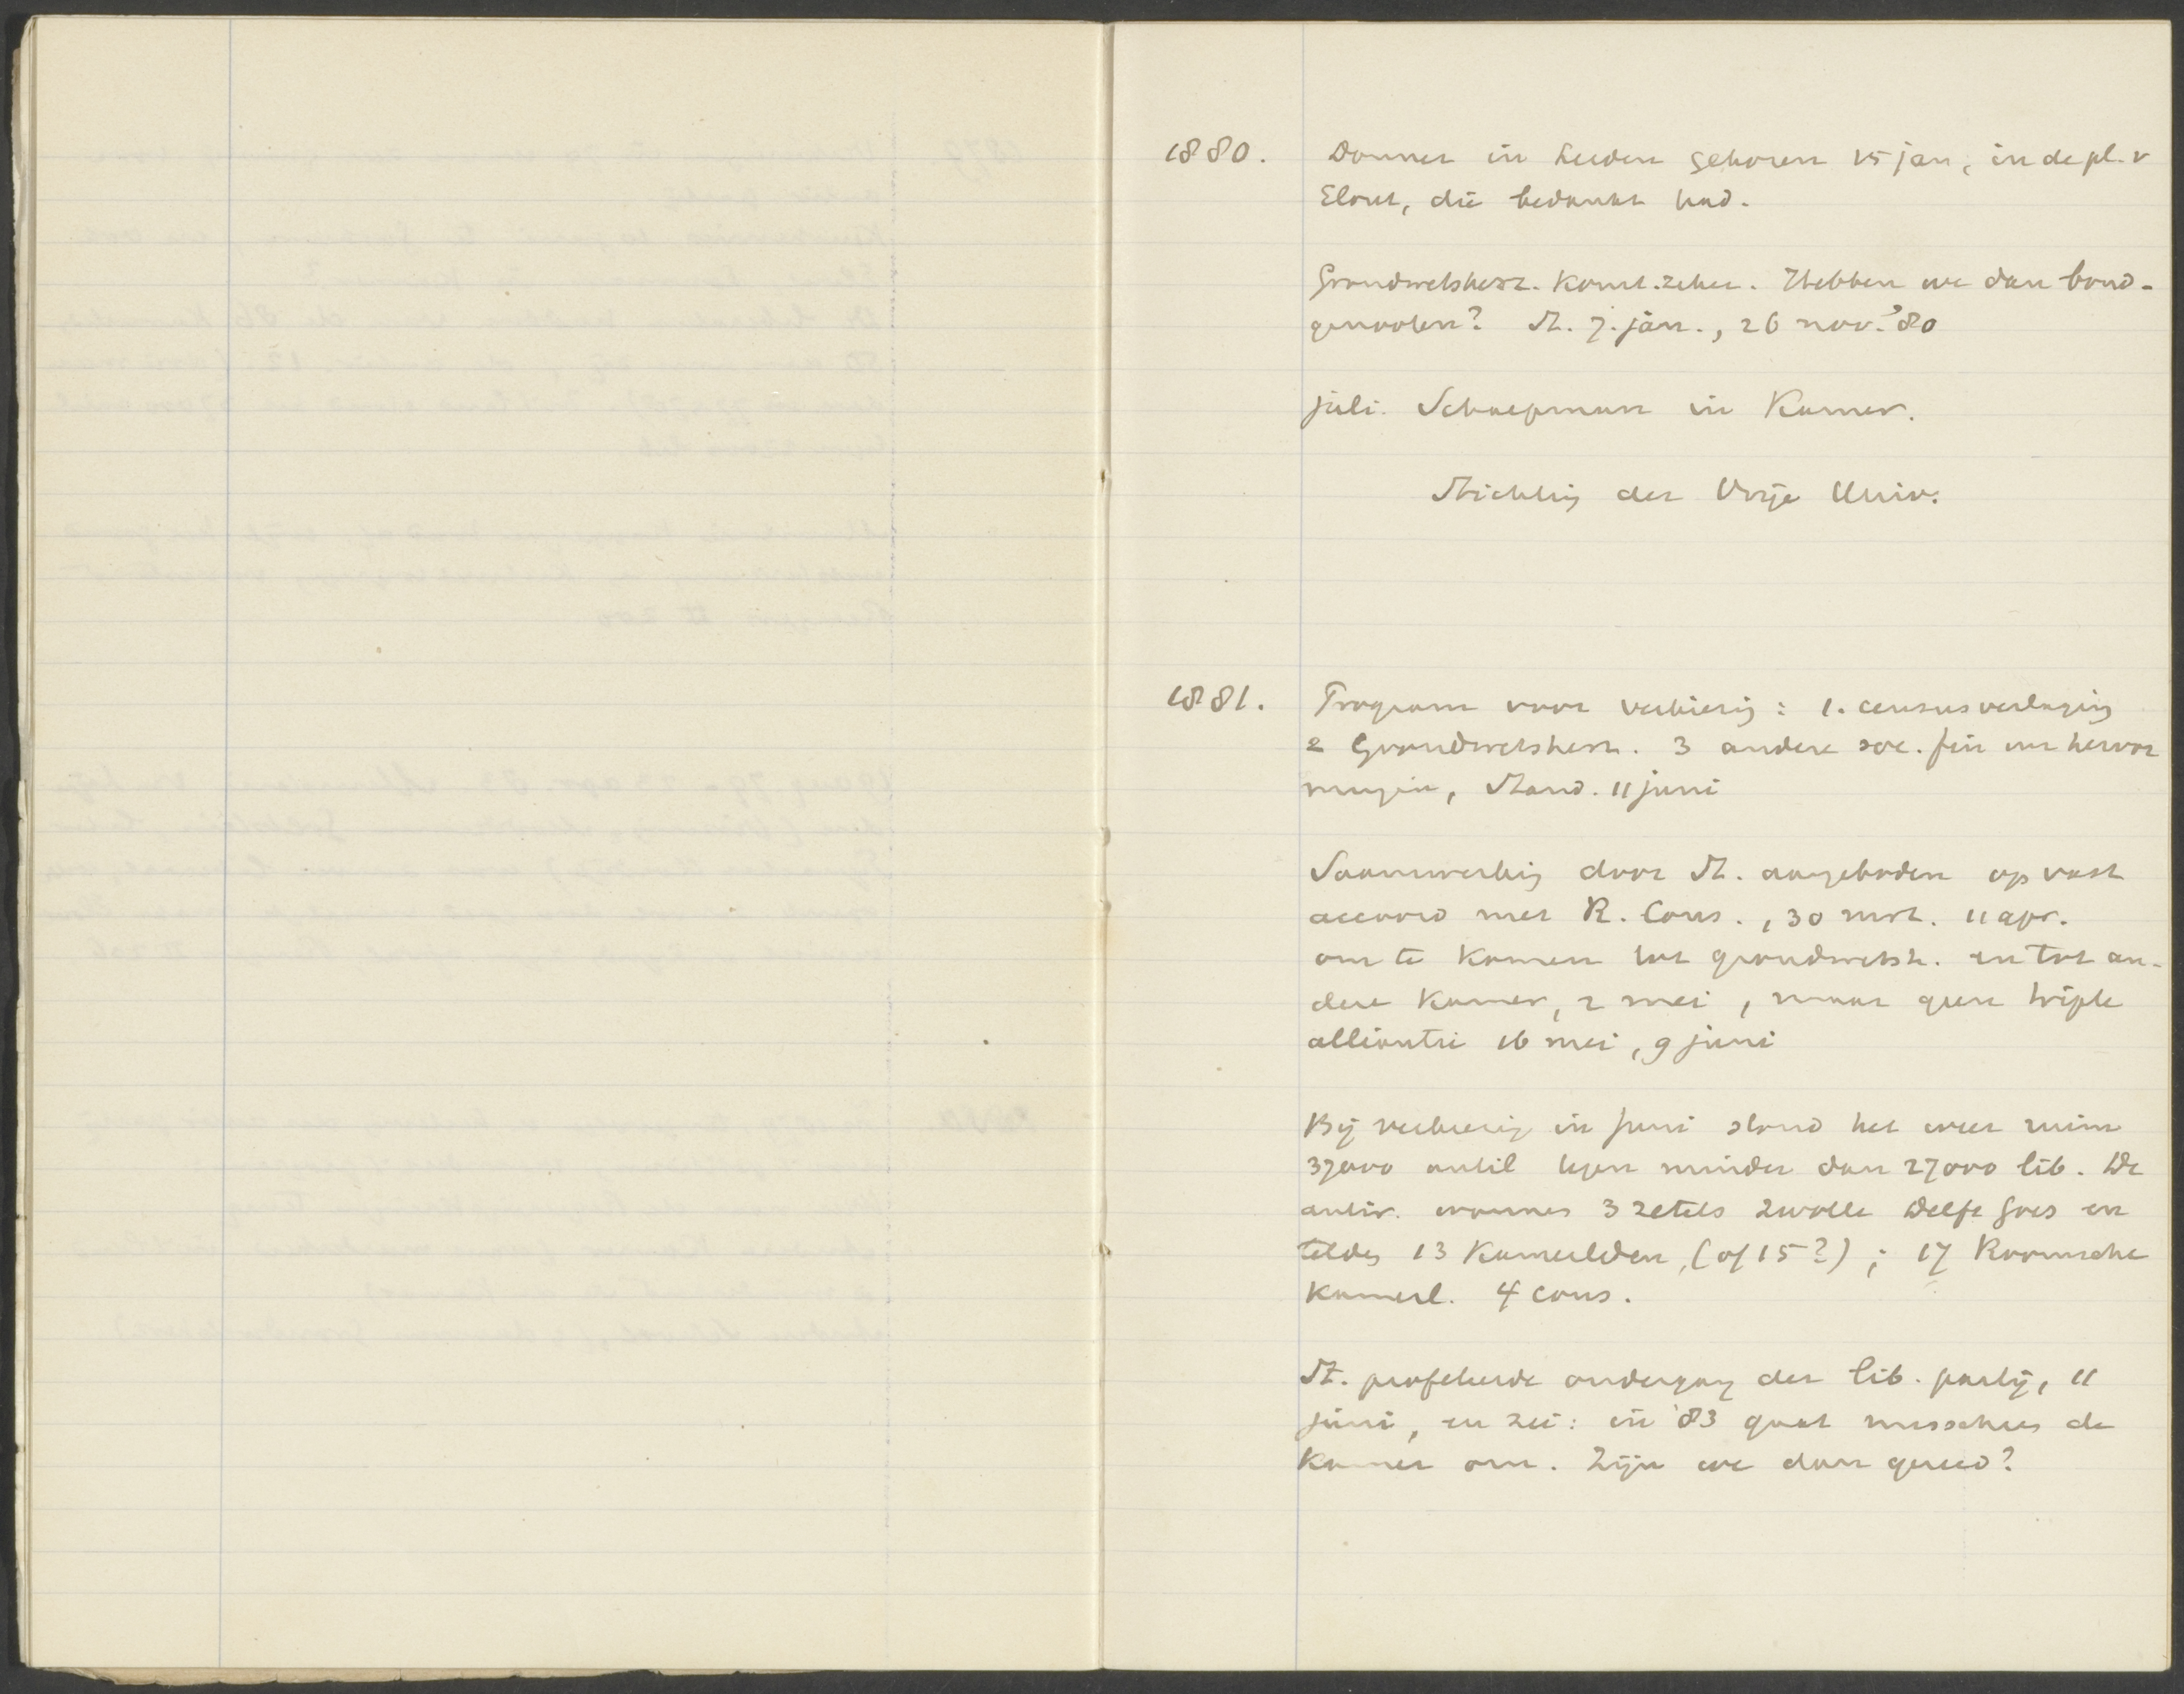 1880. Donner in Leiden gekozen 15 jan, in de pl. v
Elout, die bedankt had.
Grondwetsherz. komt zeker. Hebben we dan bond-
genooten? St. 7. jan., 26 nov. '80
juli. Schaepman in Kamer.
Stichting der Vrije Univ.
1881. Program voor verkiezing : 1. censusverlaging
2 Grondwetsherz. 3 andere soc. fin hervor
mingen, Stand. 11 juni
Saamwerking door St. aangeboden op vast
accoord met R. Cons., 30 mrt. 11 apr.
om te komen tot grondwetsh. en tot an-
dere Kamer, 2 mei, maar geen triple
alliantie 16 mei, 9 juni
Bij verkiezing in juni stond het weer ruim
37000 antil tegen minder dan 27000 lib. De
antir. wonnen 3 zetels Zwolle Delft Goes en
telden 13 Kamerleden, (of 15?) ; 17 Roomsche
Kamerl. 4 cons.
St. profeteerde ondergang der lib. partij, 11
juni, en zei: in '83 gaat misschien de
Kamer om. Zijn we dan gereed?